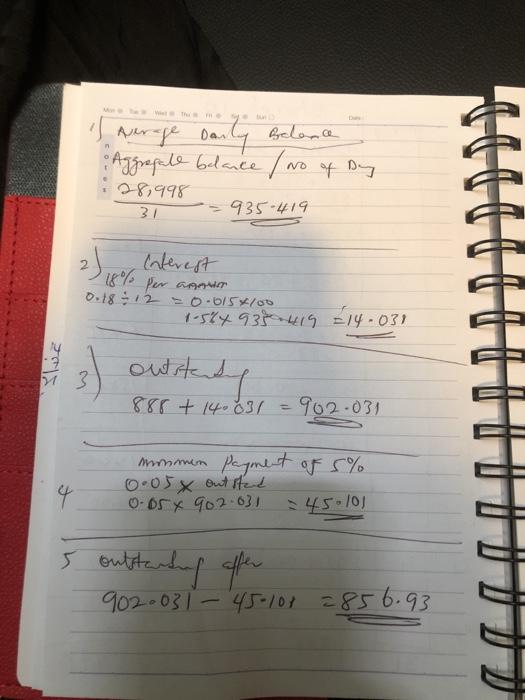 Mon Tue Wed Thu Fri Sat Sun Date:
notes
1) Average Daily Balance
Aggregate balance / No of Day
28,998
31
= 935.419
2) Interest
18% Per annum
0.18 ÷ 12 = 0.015 x 100
1.5% x 935.419 = 14.031
3) outstanding
888 + 14.031 = 902.031
minimum Payment of 5%
4 0.05 x outstand
0.05 x 902.031 = 45.101
5 outstanding after
902.031 - 45.101 = 856.93